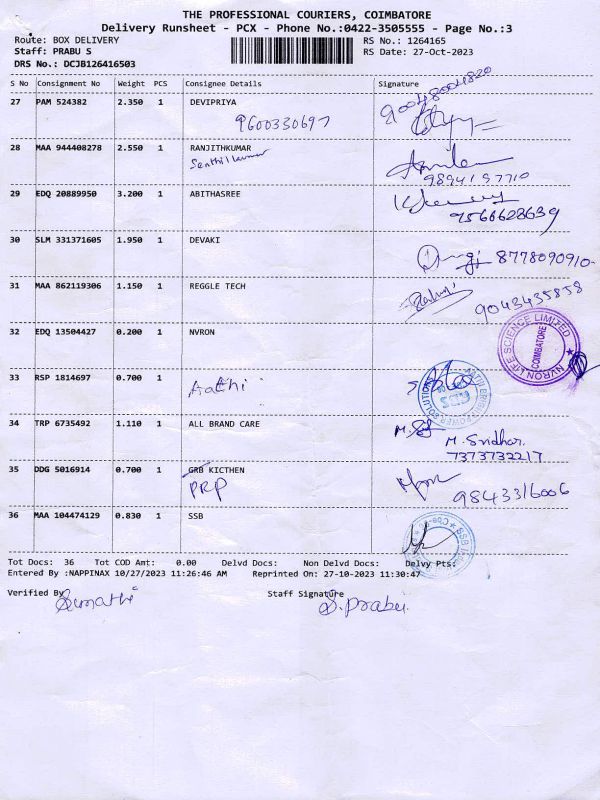 THE PROFESSIONAL COURIERS, COIMBATORE
Delivery Runsheet - PCX - Phone No.:0422-3505555 - Page No.:3
Route: BOX DELIVERY RS No.: 1264165
Staff: PRABU S RS Date: 27-Oct-2023
DRS No.: DCJB126416503
S No Consignment No Weight PCS Consignee Details Signature
27 PAM 524382 2.350 1 DEVIPRIYA 9004804820
9600330697
28 MAA 944408278 2.550 1 RANJITHKUMAR
Senthilkumar
9894157710
29 EDQ 20889950 3.200 1 ABITHASREE
9566628639
30 SLM 331371605 1.950 1 DEVAKI
8778090910
31 MAA 862119306 1.150 1 REGGLE TECH
9043435858
32 EDQ 13504427 0.200 1 NVRON
NVRON LIFE SCIENCE LIMITED
COIMBATORE
33 RSP 1814697 0.700 1
Aathi
34 TRP 6735492 1.110 1 ALL BRAND CARE
M. Sridhar
7373732217
35 DDG 5016914 0.700 1 GRB KICTHEN
PRP
9843316006
36 MAA 104474129 0.830 1 SSB
Tot Docs: 36 Tot COD Amt: 0.00 Delvd Docs: Non Delvd Docs: Delvy Pts:
Entered By :NAPPINAX 10/27/2023 11:26:46 AM Reprinted On: 27-10-2023 11:30:47
Verified By Staff Signature
Sumathi S. Prabu